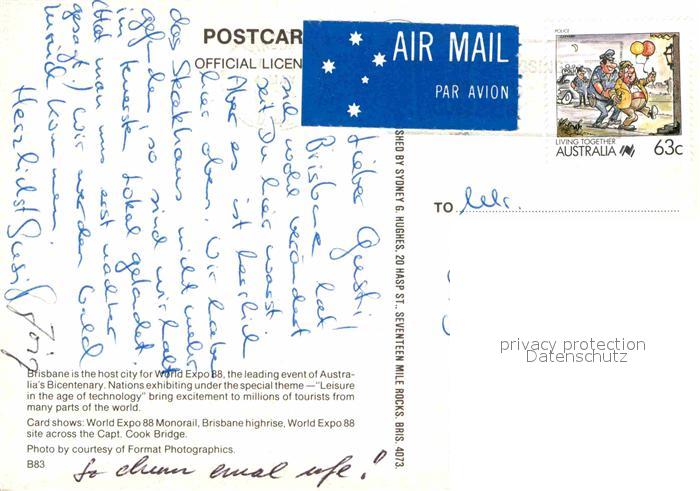 POSTCAR
OFFICIAL LICEN
AIR MAIL
PAR AVION
POLICE
LIVING TOGETHER
AUSTRALIA 63c
Lieber Gusti!
Brisbane hat
sich wohl verändert
seit Du hier warst
Aber es ist herrlich
hier oben. Wir haben
das Steakhaus nicht mehr
gefunden, so sind wir halt
im Lokal gelandet.
(Hat man uns erst nachher
gesagt!) Wir werden bald
zurück kommen.
Herzlichst Jörg
TO Mr.
SHED BY SYDNEY G. HUGHES, 20 HASP ST., SEVENTEEN MILE ROCKS, BRIS. 4073.
privacy protection
Datenschutz
Brisbane is the host city for World Expo 88, the leading event of Austra-
lia's Bicentenary. Nations exhibiting under the special theme —"Leisure
in the age of technology" bring excitement to millions of tourists from
many parts of the world.
Card shows: World Expo 88 Monorail, Brisbane highrise, World Expo 88
site across the Capt. Cook Bridge.
Photo by courtesy of Format Photographics.
B83